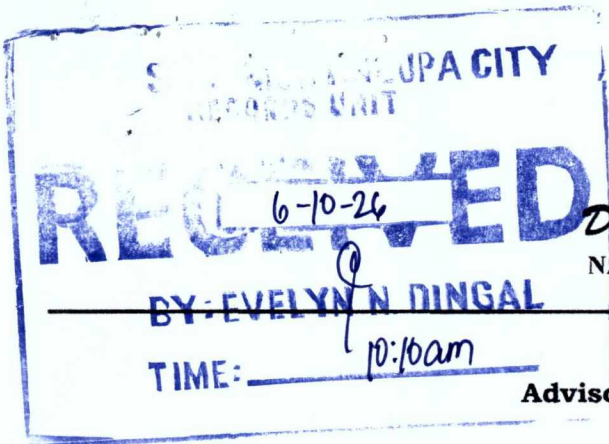 UPA CITY
RECORDS UNIT
RECEIVED
6-10-26
BY: EVELYN N DINGAL
TIME: 10:10am
Adviso